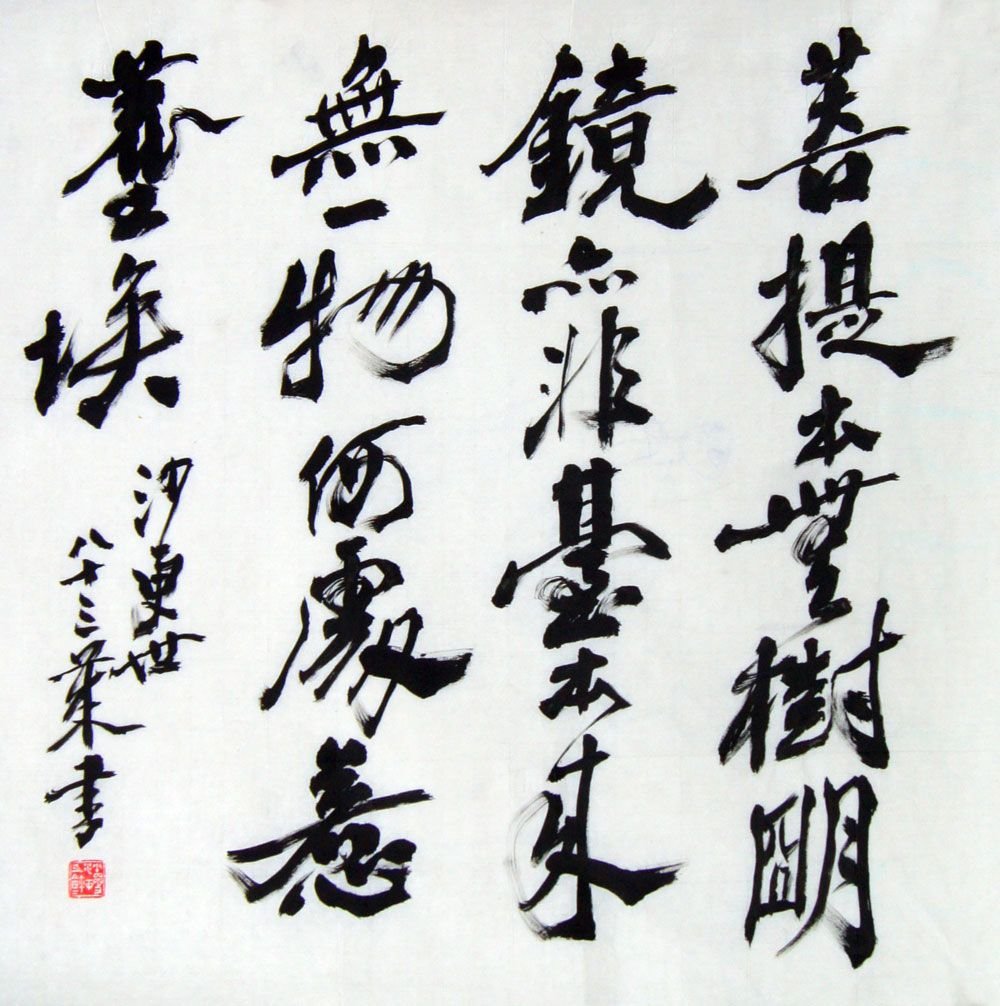 菩提本無樹朙
鏡亦非臺本来
無一物何處惹
塵埃
沙更世
八十三歲書